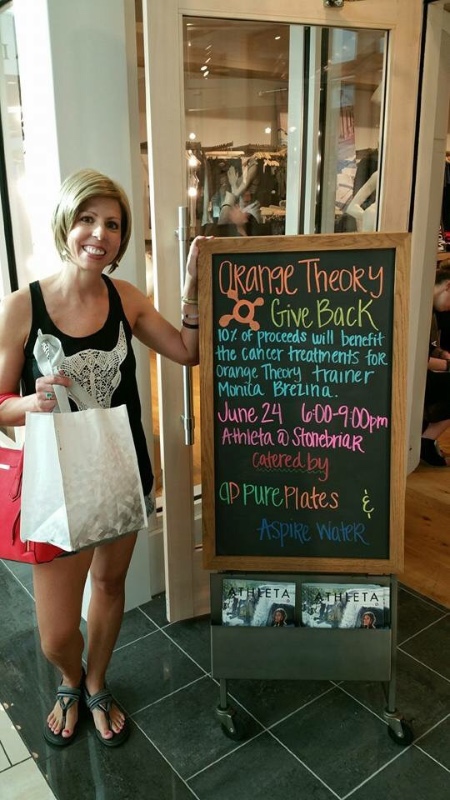 Orange Theory
Give Back
10% of proceeds will benefit
the cancer treatments for
Orange Theory trainer
Monica Brezina.
June 24 6:00-9:00pm
Athleta @ Stonebriar
catered by
PP purePlates &
Aspire Water
ATHLETA
ATHLETA